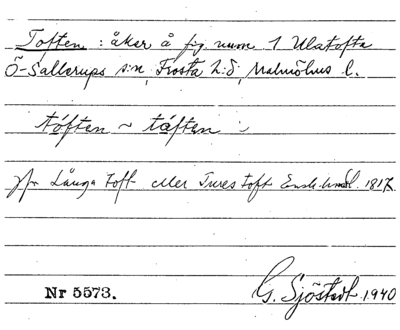 Toften : åker å fig num 1 Ulatofta
Ö-Sallerups s:n, Frosta h:d, Malmöhus l.
tóften ~ táften
jfr Långa toft eller Tures toft Ensk. 1817.
Nr 5573.
G. Sjöstedt 1940